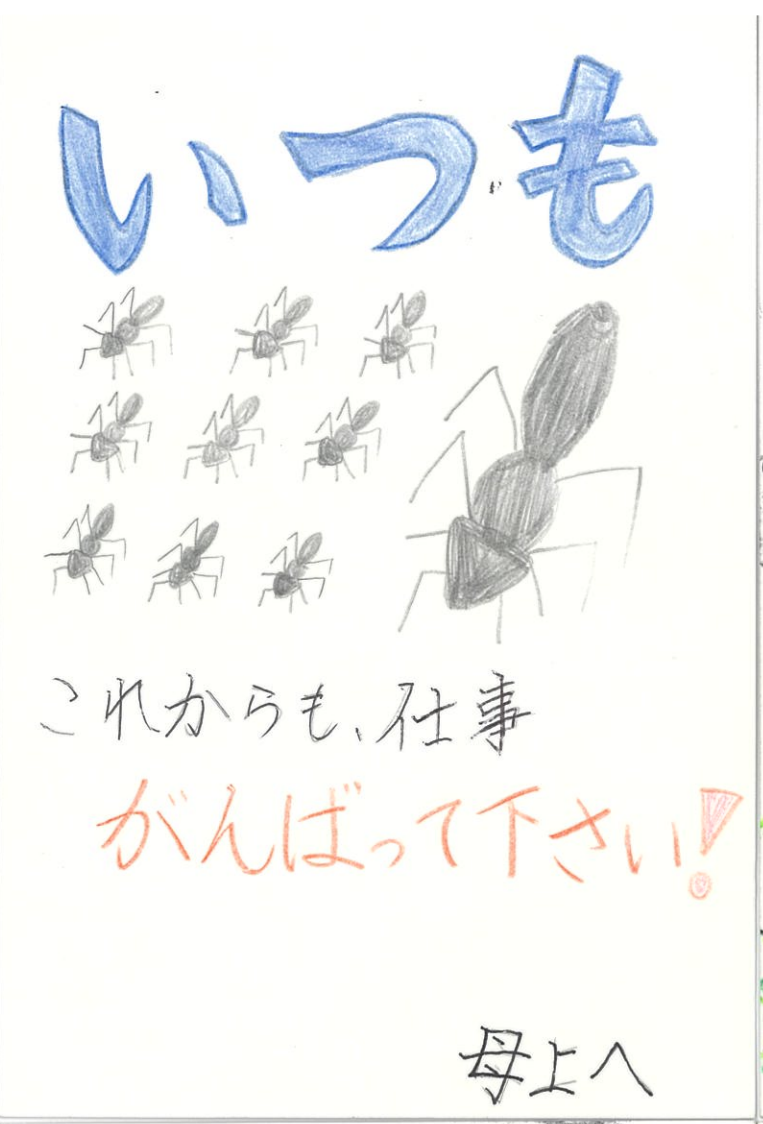 いつも
これからも、仕事
がんばって下さい!
母上へ